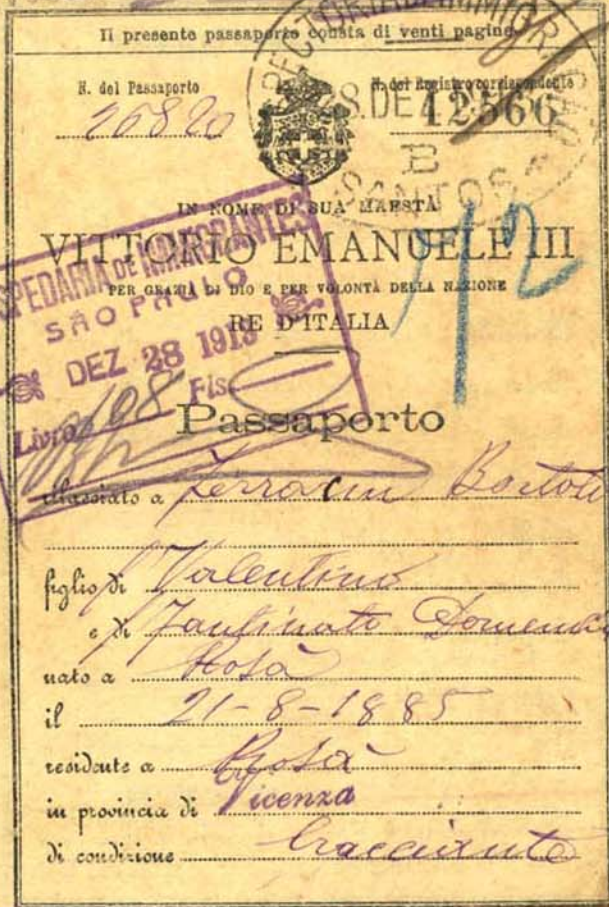 Il presente passaporto consta di venti pagine
N. del Passaporto
N. del Registro corrispondente
12566
SANTOS
IN NOME DI SUA MAESTÀ
VITTORIO EMANUELE III
PER GRAZIA DI DIO E PER VOLONTÀ DELLA NAZIONE
RE D'ITALIA
HOSPEDARIA DE IMMIGRANTES
SÃO PAULO
DEZ 28 1913
Livro 98 Fls.
Passaporto
rilasciato a
figlio di Valentino
e di Domenica
nato a Rosà
il 21-8-1885
residente a Rosà
in provincia di Vicenza
di condizione bracciante